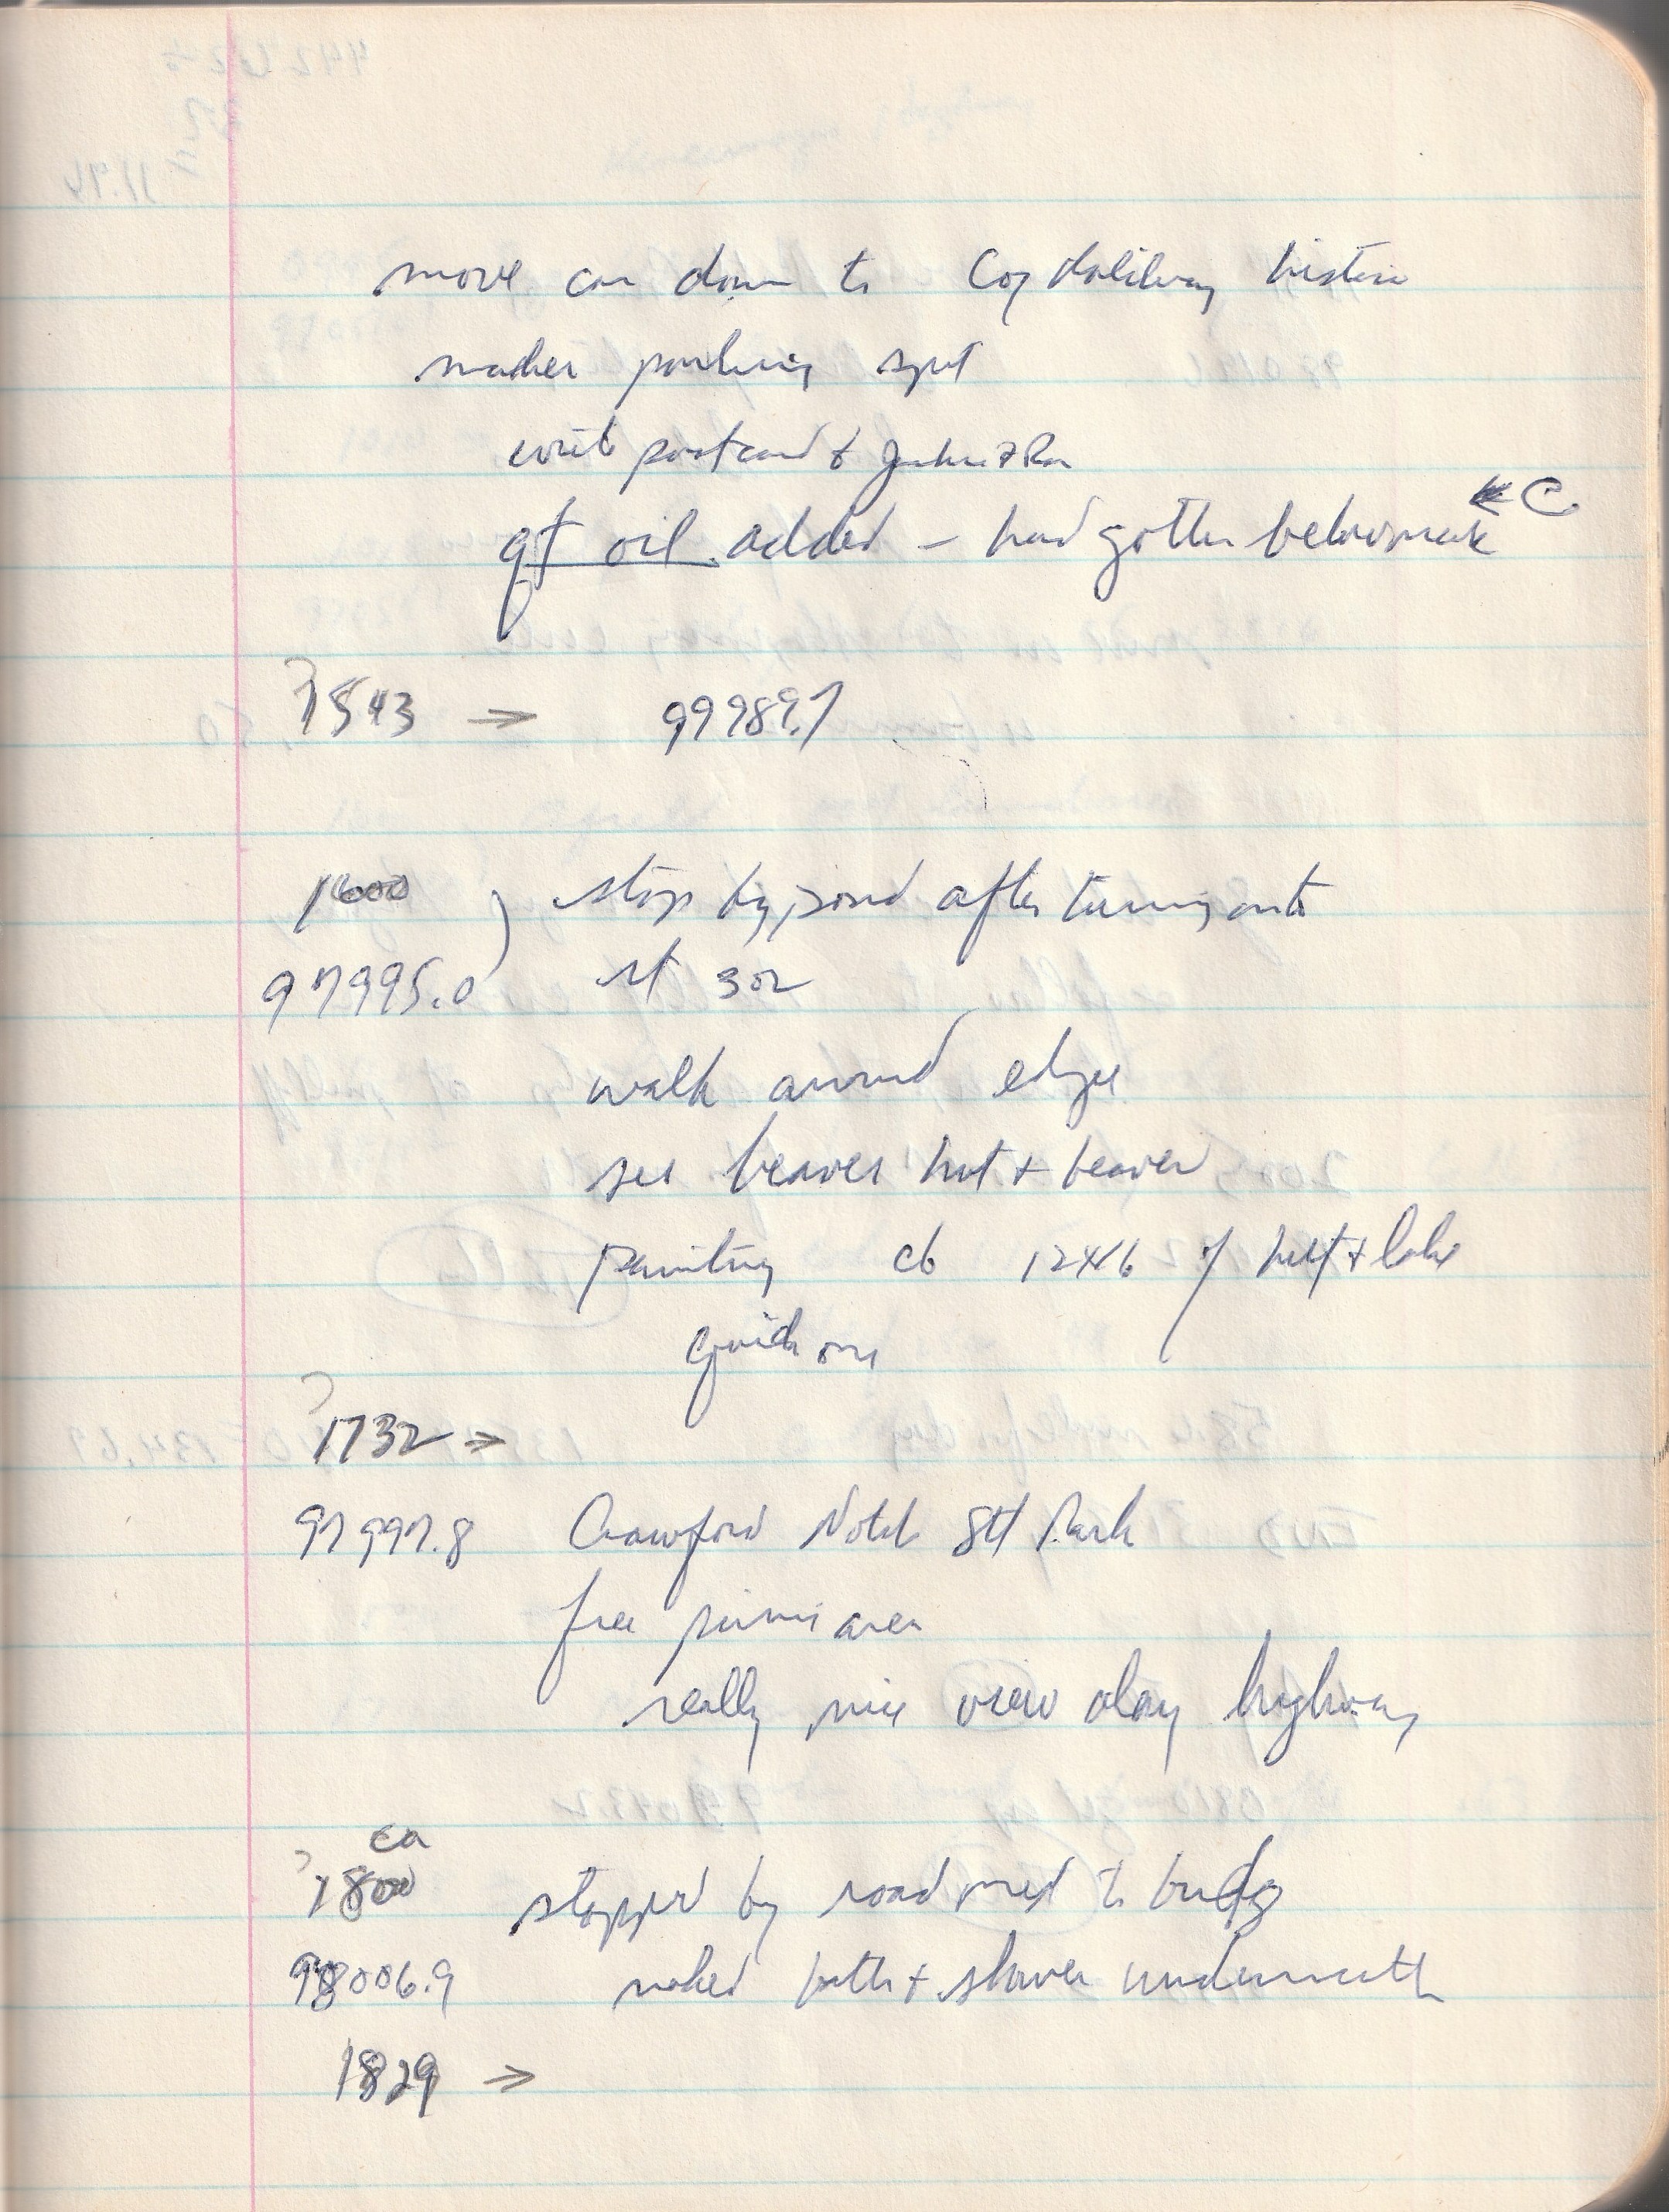 move car down to Cog Railway historic
marker parking spot
write postcard to
qt oil added – had gotten below mark
C
1543 → 97989.7
1600 ) stop by pond after turning onto
97995.0 rt 302
walk around edge
see beaver hut + beaver
painting cb 12x16 of hut + lake
quick one
1732 →
97997.8 Crawford Notch St Park
free picnic area
really nice view along highway
ca
1800 stopped by road next to bridge
98006.9 naked bath + shower underneath
1829 →